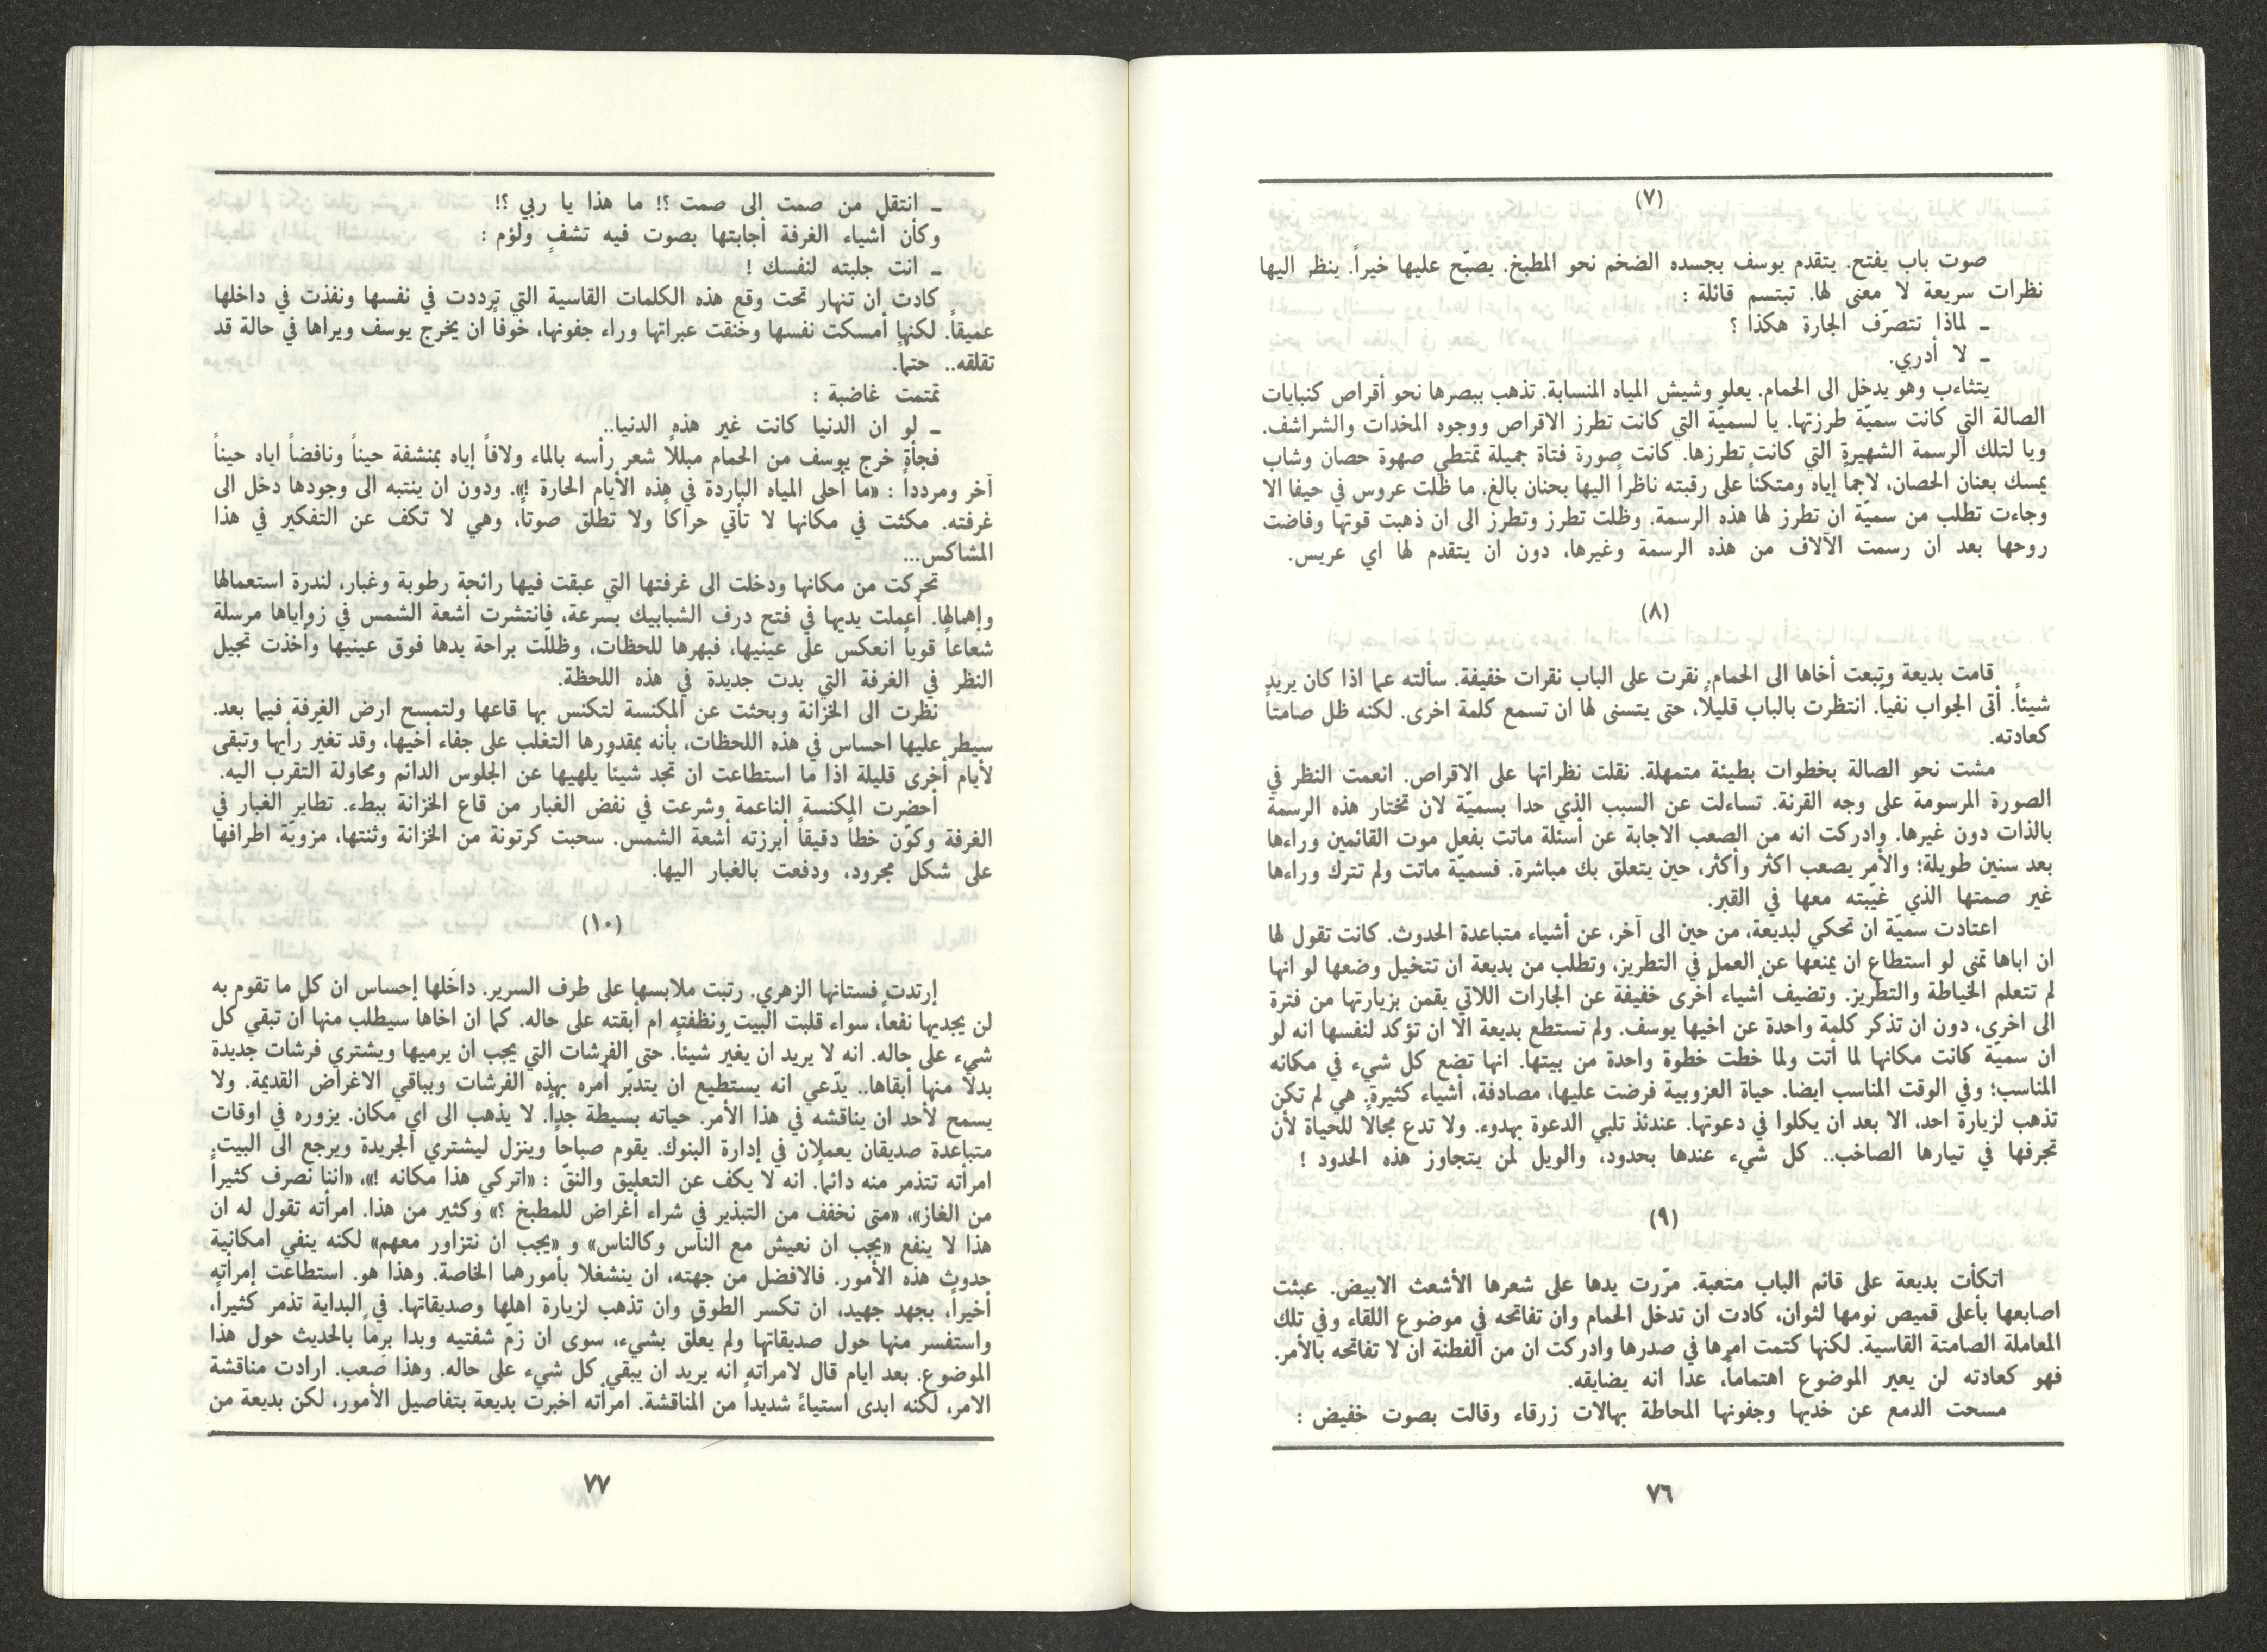 (٧)
صوت باب يفتح. يتقدم يوسف بجسده الضخم نحو المطبخ. يصبّح عليها خيراً. ينظر اليها
نظرات سريعة لا معنى لها. تبتسم قائلة :
ـ لماذا تتصرّف الجارة هكذا ؟
ـ لا أدري.
يتثاءب وهو يدخل الى الحمام. يعلو وشيش المياه المنسابة. تذهب ببصرها نحو أقراص كنبايات
الصالة التي كانت سميّة طرزتها. يا لسميّة التي كانت تطرز الاقراص ووجوه المخدات والشراشف.
ويا لتلك الرسمة الشهيرة التي كانت تطرزها. كانت صورة فتاة جميلة تمتطي صهوة حصان وشاب
يمسك بعنان الحصان، لاجماً إياه ومتكئاً على رقبته ناظراً اليها بحنان بالغ. ما ظلت عروس في حيفا الا
وجاءت تطلب من سميّة ان تطرز لها هذه الرسمة. وظلت تطرز وتطرز الى ان ذهبت قوتها وفاضت
روحها بعد ان رسمت الآلاف من هذه الرسمة وغيرها، دون ان يتقدم لها اي عريس.
(٨)
قامت بديعة وتبعت أخاها الى الحمام. نقرت على الباب نقرات خفيفة. سألته عما اذا كان يريد
شيئاً. أتى الجواب نفياً. انتظرت بالباب قليلاً، حتى يتسنى لها ان تسمع كلمة اخرى. لكنه ظل صامتاً
كعادته.
مشت نحو الصالة بخطوات بطيئة متمهلة. نقلت نظراتها على الاقراص. انعمت النظر في
الصورة المرسومة على وجه القرنة. تساءلت عن السبب الذي حدا بسميّة لان تختار هذه الرسمة
بالذات دون غيرها. وادركت انه من الصعب الاجابة عن أسئلة ماتت بفعل موت القائمين وراءها
بعد سنين طويلة؛ والأمر يصعب اكثر وأكثر، حين يتعلق بك مباشرة. فسميّة ماتت ولم تترك وراءها
غير صمتها الذي غيّبته معها في القبر.
اعتادت سميّة ان تحكي لبديعة، من حين الى آخر، عن أشياء متباعدة الحدوث. كانت تقول لها
ان اباها تمنى لو استطاع ان يمنعها عن العمل في التطريز، وتطلب من بديعة ان تتخيل وضعها لو انها
لم تتعلم الخياطة والتطريز. وتضيف أشياء أخرى خفيفة عن الجارات اللاتي يقمن بزيارتها من فترة
الى اخرى، دون ان تذكر كلمة واحدة عن اخيها يوسف. ولم تستطع بديعة الا ان تؤكد لنفسها انه لو
ان سميّة كانت مكانها لما أتت ولما خطت خطوة واحدة من بيتها. انها تضع كل شيء في مكانه
المناسب؛ وفي الوقت المناسب ايضا. حياة العزوبية فرضت عليها، مصادفة، أشياء كثيرة. هي لم تكن
تذهب لزيارة احد، الا بعد ان يكلوا في دعوتها. عندئذ تلبي الدعوة بهدوء. ولا تدع مجالاً للحياة لأن
تجرفها في تيارها الصاخب.. كل شيء عندها بحدود، والويل لمن يتجاوز هذه الحدود !
(٩)
اتكأت بديعة على قائم الباب متعبة. مرّرت يدها على شعرها الأشعث الابيض. عبثت
اصابعها بأعلى قميص نومها لثوان، كادت ان تدخل الحمام وان تفاتحه في موضوع اللقاء وفي تلك
المعاملة الصامتة القاسية. لكنها كتمت امرها في صدرها وادركت ان من الفطنة ان لا تفاتحه بالأمر.
فهو كعادته لن يعير الموضوع اهتماماً، عدا انه يضايقه.
مسحت الدمع عن خديها وجفونها المحاطة بهالات زرقاء وقالت بصوت خفيض :
٧٦
ـ انتقل من صمت الى صمت ؟! ما هذا يا ربي ؟!
وكأن أشياء الغرفة أجابتها بصوت فيه تشفٍ ولؤم :
ـ انت جلبته لنفسك !
كادت ان تنهار تحت وقع هذه الكلمات القاسية التي ترددت في نفسها ونفذت في داخلها
عميقاً. لكنها أمسكت نفسها وخنقت عبراتها وراء جفونها، خوفاً ان يخرج يوسف ويراها في حالة قد
تقلقه.. حتما.
تمتمت غاضبة :
ـ لو ان الدنيا كانت غير هذه الدنيا..
فجأة خرج يوسف من الحمام مبللاً شعر رأسه بالماء ولافاً إياه بمنشفة حيناً ونافضاً اياه حيناً
آخر ومردداً : «ما أحلى المياه الباردة في هذه الأيام الحارة !». ودون ان ينتبه الى وجودها دخل الى
غرفته. مكثت في مكانها لا تأتي حراكاً ولا تطلق صوتاً، وهي لا تكف عن التفكير في هذا
المشاكس...
تحركت من مكانها ودخلت الى غرفتها التي عبقت فيها رائحة رطوبة وغبار، لندرة استعمالها
وإهمالها. أعملت يديها في فتح درف الشبابيك بسرعة، فانتشرت أشعة الشمس في زواياها مرسلة
شعاعاً قوياً انعكس على عينيها، فبهرها للحظات، وظللّت براحة يدها فوق عينيها وأخذت تجيل
النظر في الغرفة التي بدت جديدة في هذه اللحظة.
نظرت الى الخزانة وبحثت عن المكنسة لتكنس بها قاعها ولتمسح ارض الغرفة فيما بعد.
سيطر عليها احساس في هذه اللحظات، بأنه بمقدورها التغلب على جفاء أخيها، وقد تغير رأيها وتبقى
لأيام أخرى قليلة اذا ما استطاعت ان تجد شيئاً يلهيها عن الجلوس الدائم ومحاولة التقرب اليه.
أحضرت المكنسة الناعمة وشرعت في نفض الغبار من قاع الخزانة ببطء. تطاير الغبار في
الغرفة وكوّن خطاً دقيقاً أبرزته أشعة الشمس. سحبت كرتونة من الخزانة وثنتها، مزويّة اطرافها
على شكل مجرود، ودفعت بالغبار اليها.
(١٠)
إرتدت فستانها الزهري. رتبت ملابسها على طرف السرير. داخَلها إحساس ان كل ما تقوم به
لن يجديها نفعاً، سواء قلبت البيت ونظفته ام أبقته على حاله. كما ان اخاها سيطلب منها أن تبقي كل
شيء على حاله. انه لا يريد ان يغيّر شيئاً. حتى الفرشات التي يجب ان يرميها ويشتري فرشات جديدة
بدلاً منها أبقاها.. يدّعي انه يستطيع ان يتدبّر أمره بهذه الفرشات وبباقي الاغراض القديمة. ولا
يسمح لأحد ان يناقشه في هذا الأمر. حياته بسيطة جداً. لا يذهب الى اي مكان. يزوره في اوقات
متباعدة صديقان يعملان في إدارة البنوك. يقوم صباحاً وينزل ليشتري الجريدة ويرجع الى البيت.
امرأته تتذمر منه دائماً. انه لا يكف عن التعليق والنقّ : «اتركي هذا مكانه !»، «اننا نصرف كثيراً
من الغاز»، «متى نخفف من التبذير في شراء أغراض للمطبخ ؟» وكثير من هذا. امرأته تقول له ان
هذا لا ينفع «يجب ان نعيش مع الناس وكالناس» و «يجب ان نتزاور معهم» لكنه ينفي امكانية
حدوث هذه الأمور. فالافضل من جهته، ان ينشغلا بأمورهما الخاصة. وهذا هو. استطاعت إمرأته
أخيراً، بجهد جهيد، ان تكسر الطوق وان تذهب لزيارة اهلها وصديقاتها. في البداية تذمر كثيراً،
واستفسر منها حول صديقاتها ولم يعلّق بشيء، سوى ان زمّ شفتيه وبدا برماً بالحديث حول هذا
الموضوع. بعد ايام قال لامرأته انه يريد ان يبقي كل شيء على حاله. وهذا صَعب. ارادت مناقشة
الامر، لكنه ابدى استياءً شديداً من المناقشة. امرأته اخبرت بديعة بتفاصيل الأمور، لكن بديعة من
٧٧